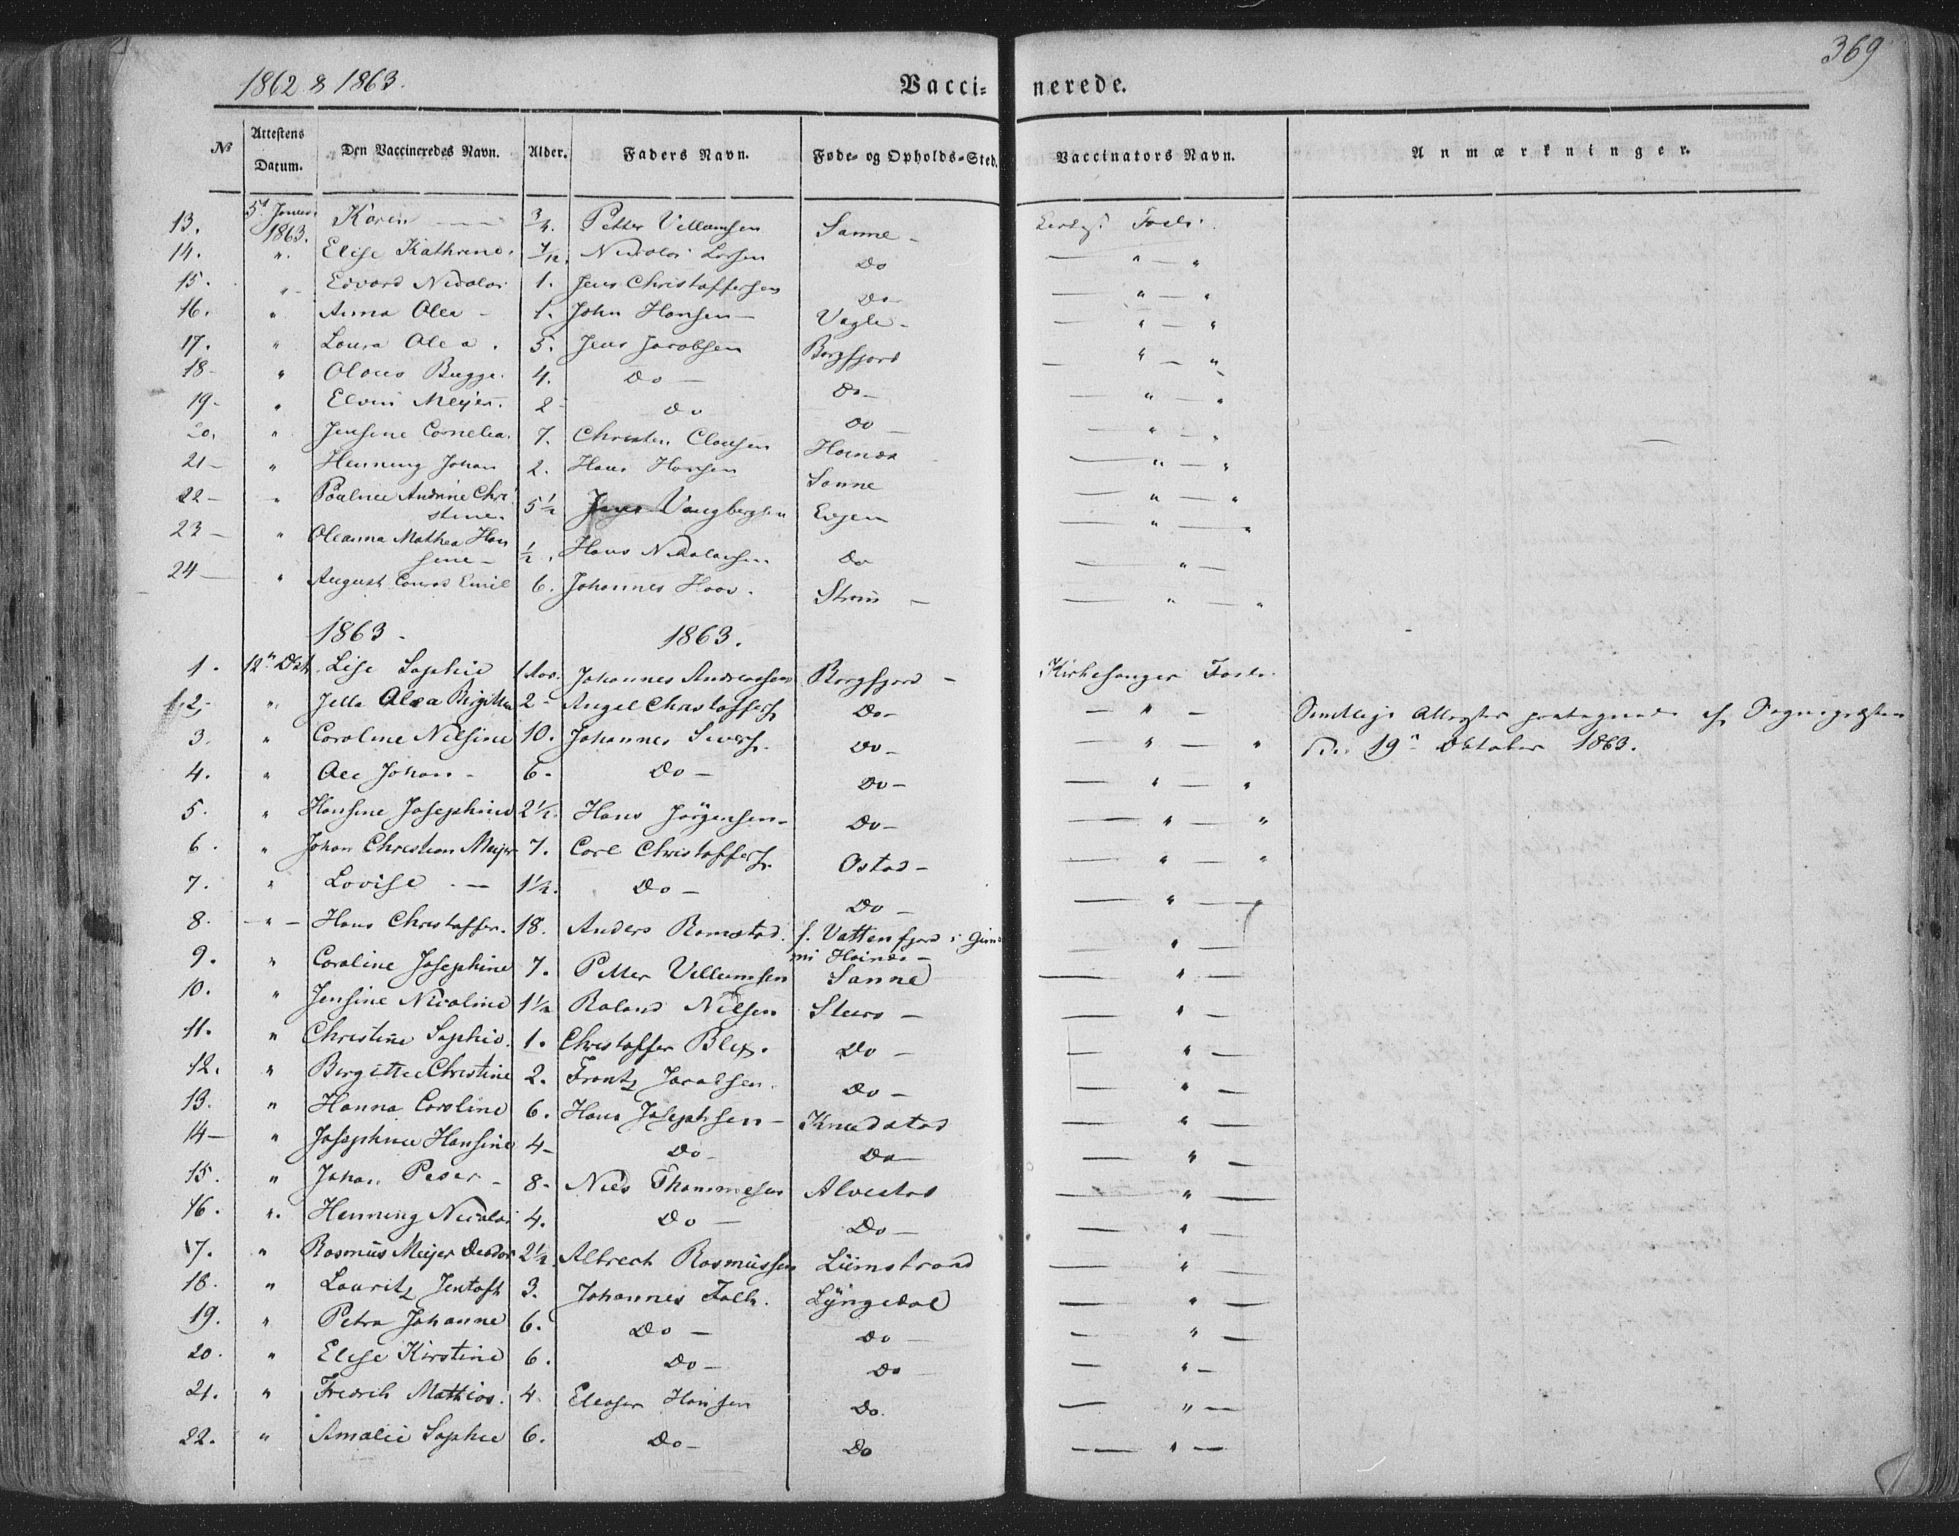 369
1862 & 1863.
Vaccinerede.
№ Attestens Datum. Den Vaccineredes Navn. Alder. Faders Navn. Føde- og Opholds-Sted. Vaccinators Navn. Anmærkninger.
13. 5t 1863. Karen — 3/4. Petter Villumsen Sanne —
14. " Elise Kathrine. 7/12. Nicolai Larsen Do — " — "
15. " Edvard Nicolai 1. Jens Christoffersen Do — " — "
16. " Anna Olea — 1. John Hansen — Vagle — — " — "
17. " Laura Olea. 5. Jens Jacobsen Borgfjord — " — "
18 — " Olaus Bugge. 4. Do — Do — — " — "
19 — " Elvin Meyer. 2 Do Do — — " — "
20. " Jensine Cornelia. 7. Christen Clausen — " — "
21 — " Henning Johan 2. Hans Hansen Sanne — " — "
22 — " Pauline Andrine Chri
stine. 5 1/2 Jens Evjen — " — "
23 — " Oleanna Mathea Han
sine — 1/2. Hans Nikolaisen Do — " —
24 — " August Conrad Emil 6. Johannes — " — "
1863. 1863.
1. 12te Lise Sophie 1 Johannes Andreassen Borgfjord — Kirkesanger
2. " Olea Birgitta 2 — Angel Christoffers. Do — — " —
3. " Caroline Nilsine 10. Johannes Sivers. Do — — " — "
19de Oktober 1863.
4. " Ole Johan — 6. Do — Do — — " — "
5. " Hansine Josephine 2 1/2. Hans Jørgensen — Do — — " — "
6. " Johan Christian Meyer 7. Carl Christoffers. Ostad — — " — "
7. " Lovise — 1 1/2. Do — Do — — " —
8. — " — Hans Christoffer. 18. Anders Ramstad. f. Vattenfjord i — " —
9. " Caroline Josephine 7. Petter Villumsen Sanne — " —
10. " Jensine Nicoline 1 1/2 Roland Nilsen — " —
11. " Christine Sophie. 1. Christoffer Blix. Do — — " —
12. " Birgitte Christine 2. Frantz Jacobsen. Do — — " —
13. " Hanna Caroline 6. Hans Josephsen — Knudstad — " —
14 — " Josephine Hansine 4 — Do — Do — — " —
15. " Johan Peder — 8 — Niels Thommesen Alvestad — " —
16. " Henning Nicolai 4. Do — Do — — " —
17. " Rasmus Meyer Deodor 2 1/2 Albrech Rasmussen Limstrand — " —
18. " Lauritz Jentoft 3. Johannes Falk. Lyngedal — " —
19. " Petra Johanne 6. Do — Do — — " —
20. " Elise Kirstine 6. Do — Do — " —
21. " Fredrik Mathias. 4. Eleaser Hansen Do. — " —
22. " Amalie Sophie 6. Do — Do — " —